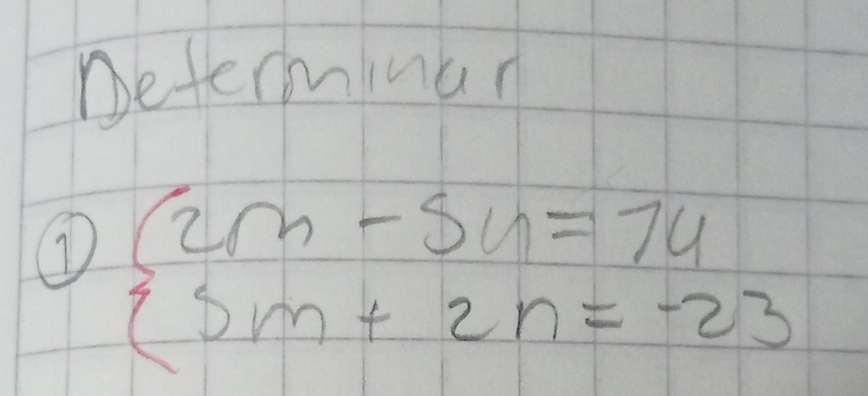 Determinar
① { 2m - 5n = 14
5m + 2n = -23